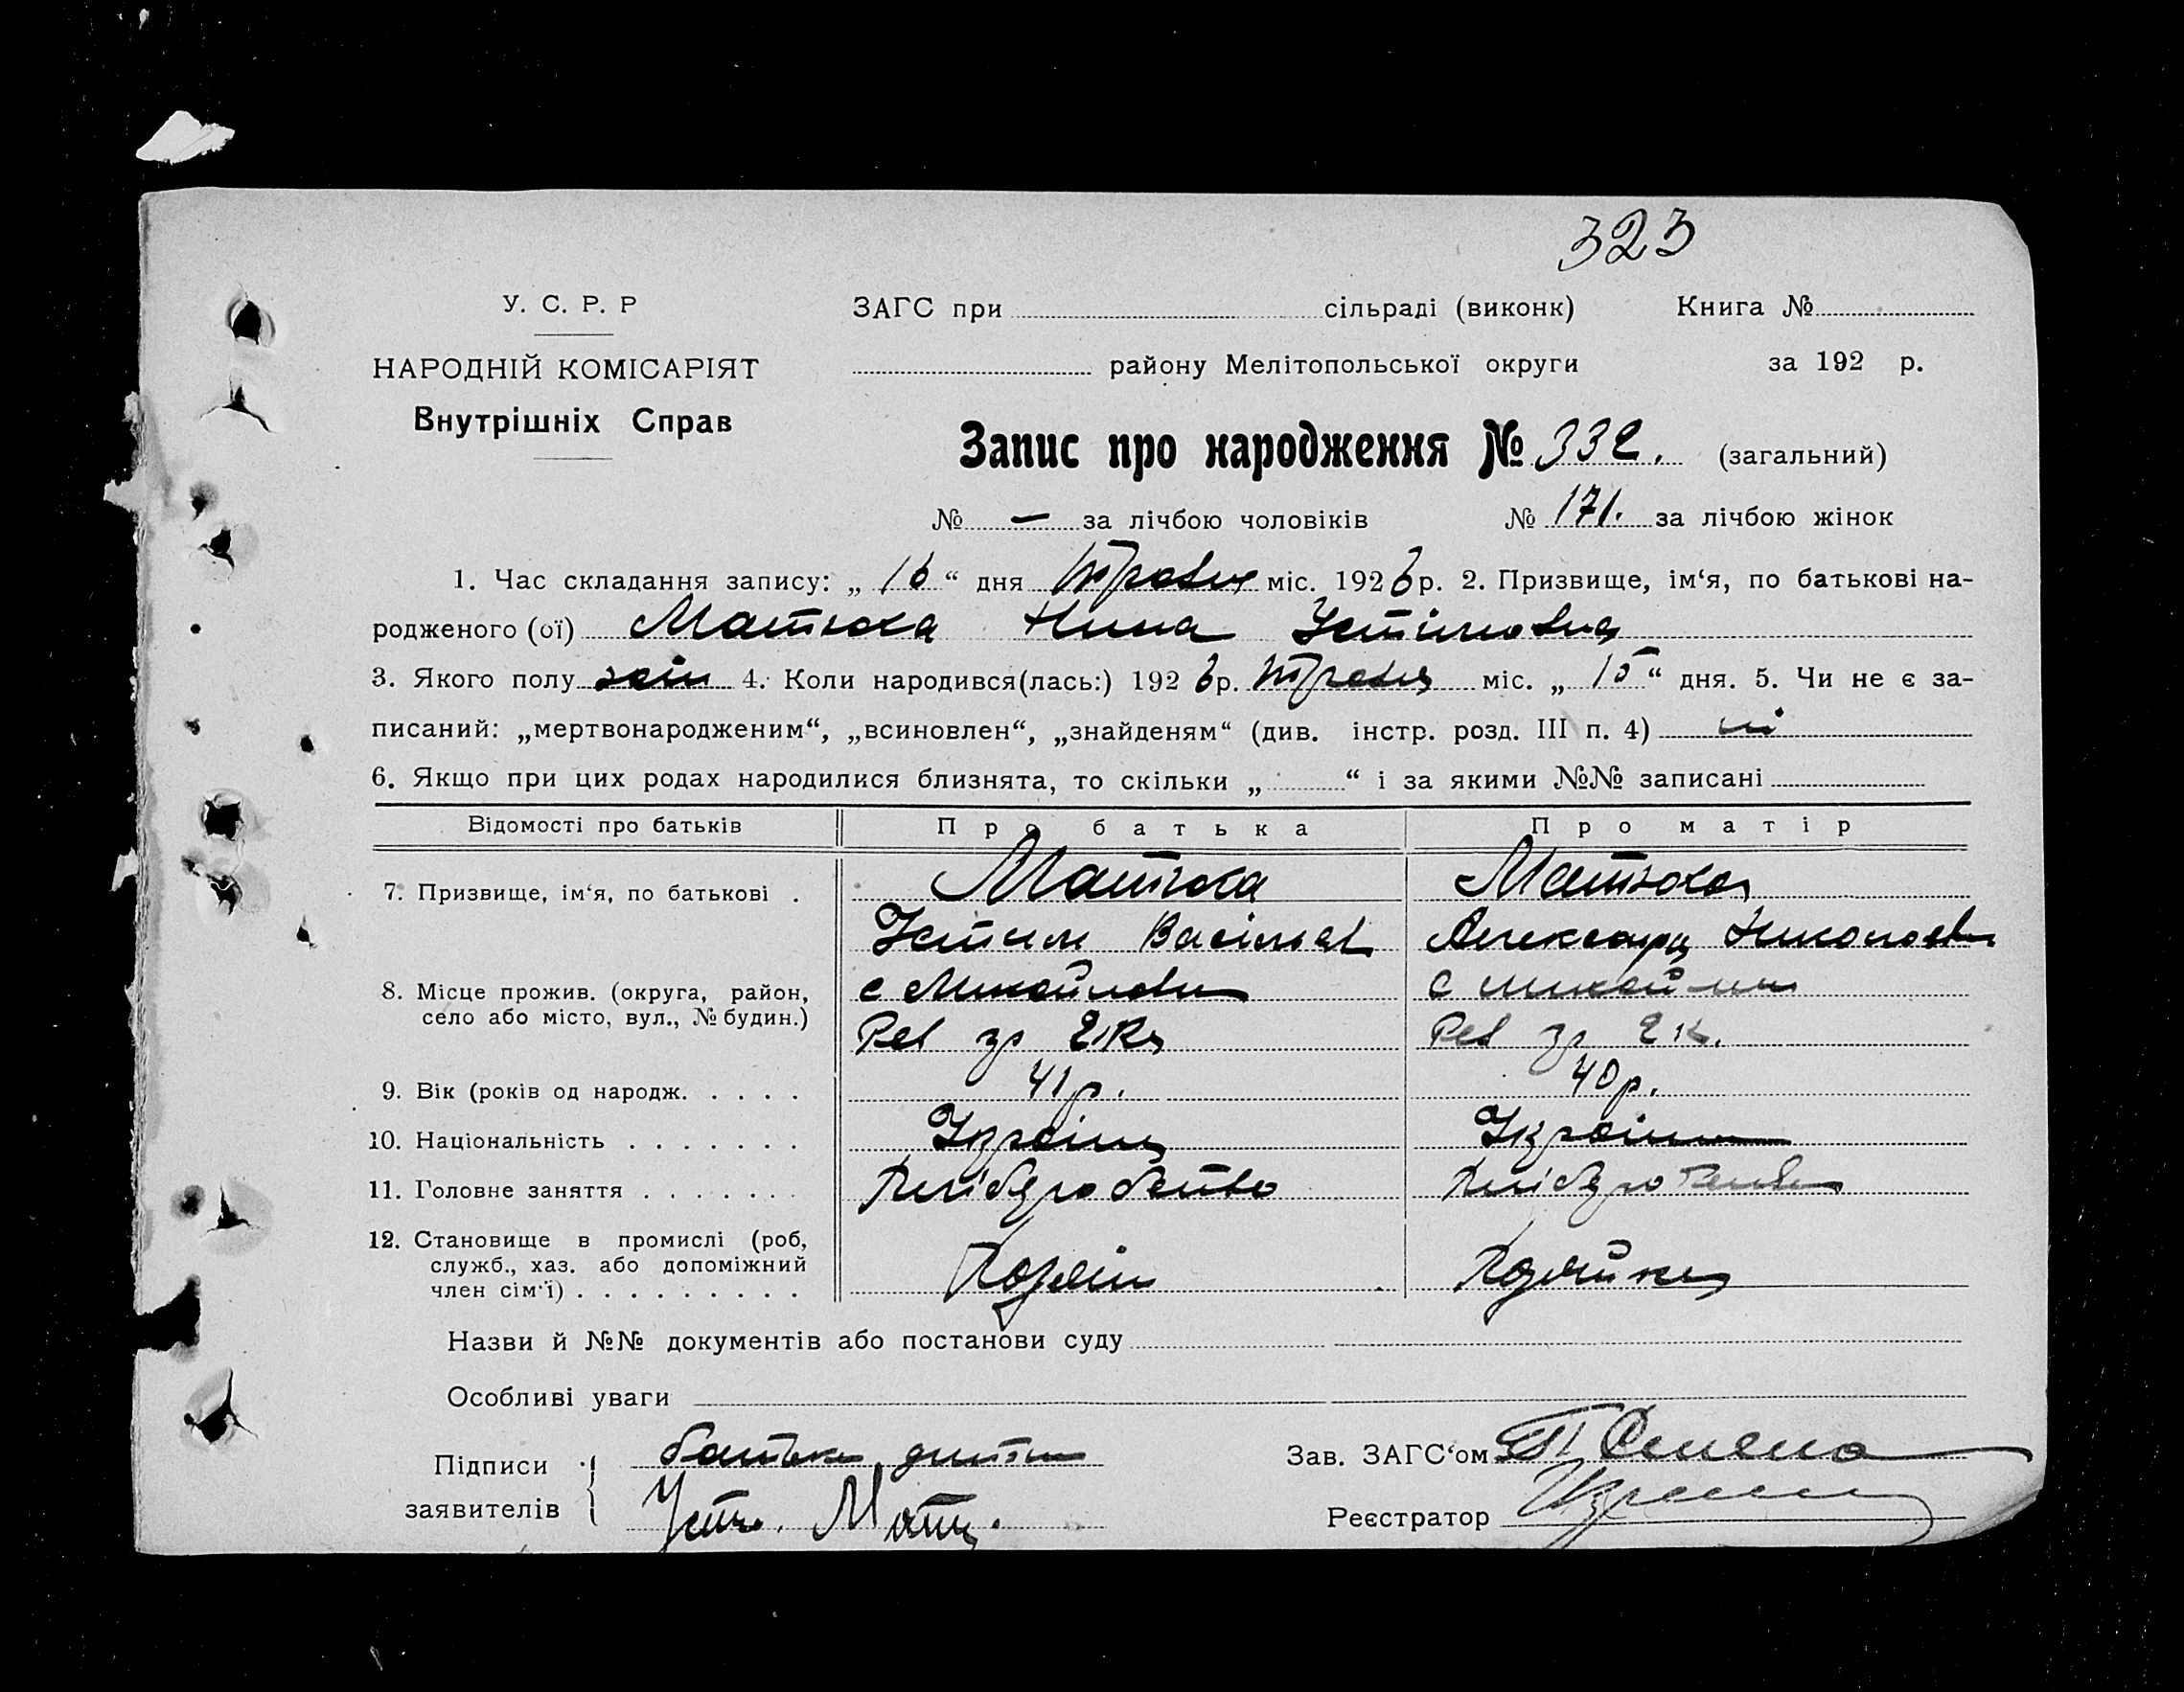 323
У. С. Р. Р
ЗАГС при сільраді (виконк) Книга №
НАРОДНІЙ КОМІСАРІЯТ
району Мелітопольської округи за 192 р.
Внутрішніх Справ
Запис про народження № 332. (загальний)
№ — за лічбою чоловіків № 171. за лічбою жінок
1. Час складання запису: „ 16 “ дня Травня міс. 1926 р. 2. Призвище, ім‘я, по батькові на-
родженого (ої) Матюха Нина Устіновна
3. Якого полу жін 4. Коли народився(лась:) 1926 р. Травня міс. „ 15 “ дня. 5. Чи не є за-
писаний: „мертвонародженим“, „всиновлен“, „знайденям“ (див. інстр. розд. III п. 4) ні
6. Якщо при цих родах народилися близнята, то скільки „ “ і за якими №№ записані
Відомості про батьків Про батька Про матір
7. Призвище, ім‘я, по батькові . Матюха Матюха
Устин Васільев Александра Николаевн
8. Місце прожив. (округа, район, с Михайловки с
село або місто, вул., № будин.) Рев
9. Вік (років од народж. . . . . 41 р. 40 р.
10. Національність . . . . . . . Україн Україн
11. Головне заняття . . . . . . . Хліборобство
12. Становище в промислі (роб,
служб., хаз. або допоміжний Хозяїн Хозяйка
член сім‘ї) . . . . . . . . .
Назви й №№ документів або постанови суду
Особливі уваги
Підписи батько дитини Зав. ЗАГС‘ом
заявителів Реєстратор